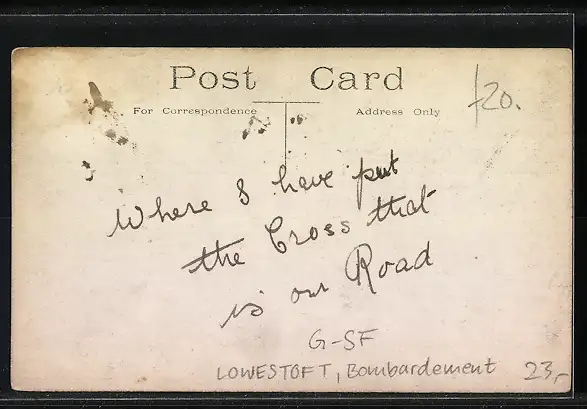 Post Card
For Correspondence
Address Only
£20.
Where I have put
the Cross that
is our Road
G-SF
LOWESTOFT, Bombardement
23,-